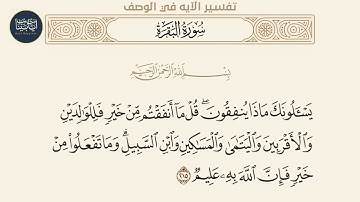 تفسير الآيه في الوصف
سُورَةُ البَقَرَةِ
بِسْمِ اللَّهِ الرَّحْمَٰنِ الرَّحِيمِ
يَسْـَٔلُونَكَ مَاذَا يُنفِقُونَ ۖ قُلْ مَآ أَنفَقْتُم مِّنْ خَيْرٍ فَلِلْوَٰلِدَيْنِ
وَٱلْأَقْرَبِينَ وَٱلْيَتَٰمَىٰ وَٱلْمَسَٰكِينِ وَٱبْنِ ٱلسَّبِيلِ ۗ وَمَا تَفْعَلُوا۟ مِنْ
خَيْرٍ فَإِنَّ ٱللَّهَ بِهِۦ عَلِيمٌ ٢١٥